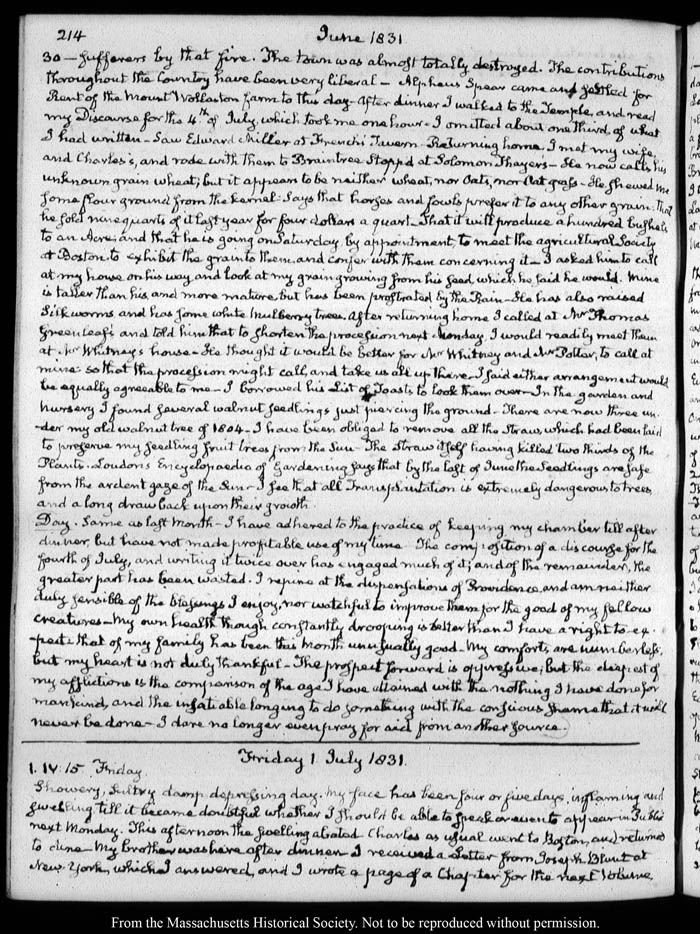 214
June 1831
30 — sufferers by that fire. The town was almost totally destroyed. The contributions
throughout the Country have been very liberal — Alpheus Spear came and settled for
Rent of the Mount Wollaston farm to this day. After dinner I walked to the Temple, and read
my Discourse for the 4th of July, which took me one hour. I omitted about one third of what
I had written — Saw Edward Miller at French's Tavern — Returning home, I met my wife,
and Charles's, and rode with them to Braintree. Stopp'd at Solomon Thayer's — He now calls his
unknown grain wheat; but it appears to be neither wheat, nor Oats, nor Oat grass — He shewed me
some flour ground from the kernel. Says that horses and fowls prefer it to any other grain. That
he sold nine quarts of it last year for four dollars a quart. That it will produce a hundred bushels
to an Acre; and that he is going on Saturday by appointment to meet the agricultural Society
at Boston to exhibit the grain to them and confer with them concerning it — I asked him to call
at my house on his way and look at my grain growing from his seed, which he said he would. Mine
is taller than his, and more mature but has been prostrated by the Rain — He has also raised
Silk worms and has some white Mulberry trees. After returning home I called at Mr Thomas
Greenleaf's and told him that to shorten the procession next Monday, I would readily meet them
at Mr Whitney's house — He thought it would be better for Mr Whitney and Mr Potter, to call at
mine so that the procession might call, and take us all up there — I said either arrangement would
be equally agreeable to me — I borrowed his List of Toasts to look them over — In the garden and
nursery I found several walnut seedlings just piercing the ground — There are now three un-
der my old walnut tree of 1804 — I have been obliged to remove all the Straw, which had been laid
to preserve my seedling fruit trees from the Sun — The Straw itself having killed two thirds of the
Plants. Loudon's Encyclopaedia of Gardening says that by the last of June the Seedlings are safe
from the ardent gaze of the Sun — I see that all Transplantation is extremely dangerous to trees
and a long draw back upon their growth.
Day. Same as last month — I have adhered to the practice of keeping my chamber till after
dinner, but have not made profitable use of my time — The composition of a discourse for the
fourth of July, and writing it twice over has engaged much of it; and of the remainder, the
greater part has been wasted. I repine at the dispensations of Providence, and am neither
duly sensible of the blessings I enjoy, nor watchful to improve them for the good of my fellow
creatures — My own health though constantly drooping is better than I have a right to ex-
-pect: that of my family has been this Month unusually good. My comforts are numberless,
but my heart is not duly thankful — The prospect forward is oppressive; but the deepest of
my afflictions is the comparison of the age I have attained with the nothing I have done for
mankind, and the insatiable longing to do something with the conscious shame that it will
never be done — I dare no longer even pray for aid from another source.
Friday 1. July 1831.
1. IV:15. Friday.
Showery, sultry damp depressing day. My face has been four or five days, inflaming and
swelling till it became doubtful whether I should be able to speak or even to appear in Public
next Monday. This afternoon the swelling abated. Charles as usual went to Boston, and returned
to dine — My brother was here after dinner — I received a Letter from Joseph Blunt at
New-York, which I answered, and I wrote a page of a Chapter for the next Volume
From the Massachusetts Historical Society. Not to be reproduced without permission.